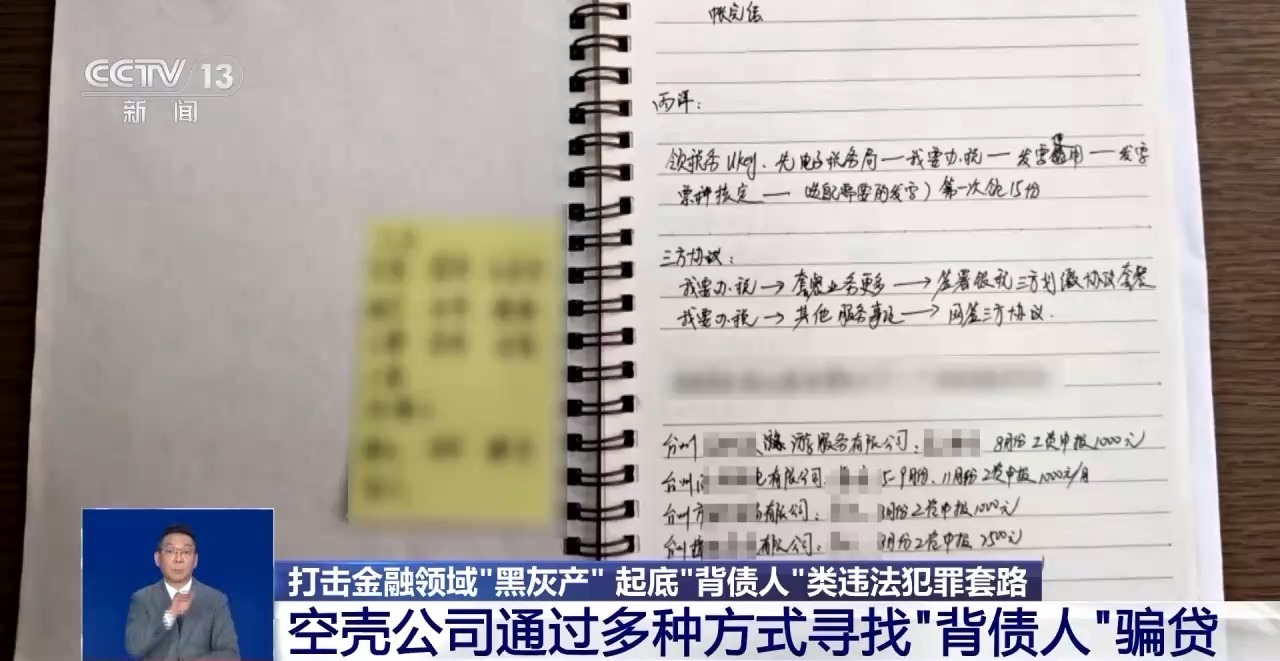 CCTV 13
新闻
帐完结
雨洋：
领税务Ukey、先电子税务局—我要办税—发票使用—发票
票种核定—选配需要的发票）第一次领15份
三方协议：
我要办税→套餐业务更多→签署银税三方划缴协议套餐
我要办税→其他服务事项→网签三方协议.
台州 游服务有限公司： 8月份工资申报1000元
台州 有限公司： 5-9月份、11月份工资申报1000元/月
台州 有限公司： 月份工资申报1000元
台州 有限公司： 月份工资申报2500元
打击金融领域"黑灰产" 起底"背债人"类违法犯罪套路
空壳公司通过多种方式寻找"背债人"骗贷